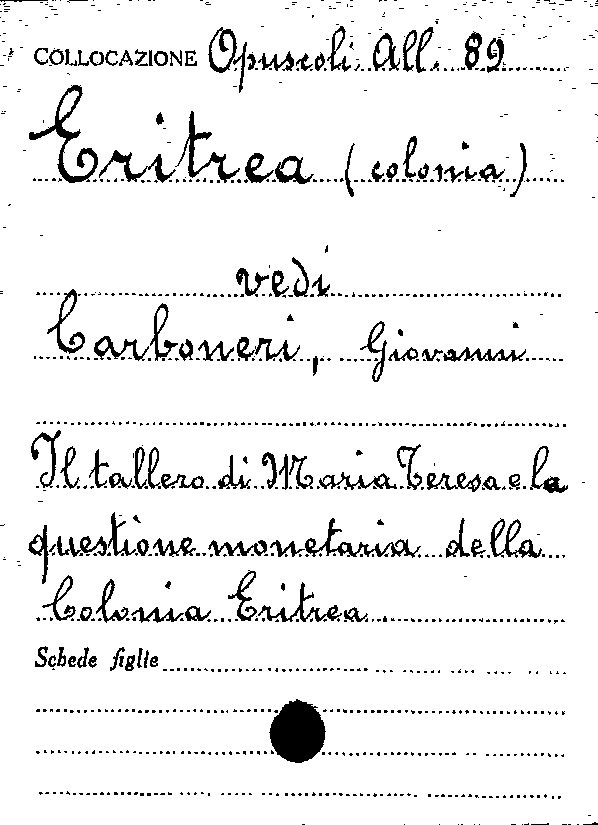 COLLOCAZIONE Opuscoli All. 89
Eritrea (colonia)
vedi
Carboneri, Giovanni
Il tallero di Maria Teresa e la
questione monetaria della
Colonia Eritrea.
Schede figlie